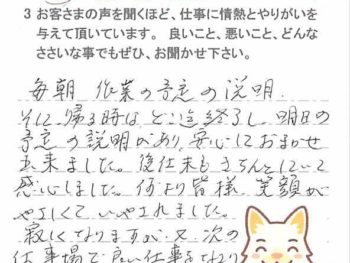 3 お客さまの声を聞くほど、仕事に情熱とやりがいを
与えて頂いています。 良いこと、悪いこと、どんな
ささいな事でもぜひ、お聞かせ下さい。
毎朝 作業の予定の説明
そして帰る時はどこ迄終了し、明日の
予定の説明があり、安心しておまかせ
出来ました。後仕末もきちんとしていて
感心しました。何より皆様 笑顔が
やさしくて いやされました。
寂しくなりますが、又、次の
仕事場で良い仕事をなさり